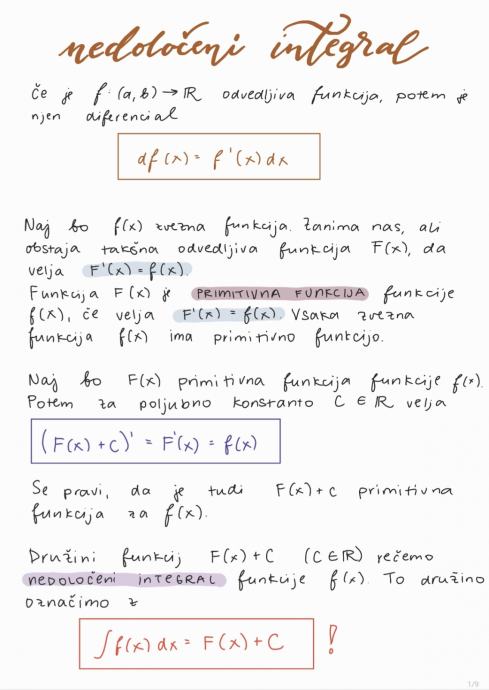 nedoločeni integral
Če je f: (a,b) → ℝ odvedljiva funkcija, potem je
njen diferencial
df(x) = f'(x)dx
Naj bo f(x) zvezna funkcija. Zanima nas, ali
obstaja takšna odvedljiva funkcija F(x), da
velja F'(x) = f(x).
Funkcija F(x) je PRIMITIVNA FUNKCIJA funkcije
f(x), če velja F'(x) = f(x). Vsaka zvezna
funkcija f(x) ima primitivno funkcijo.
Naj bo F(x) primitivna funkcija funkcije f(x).
Potem za poljubno konstanto C ∈ ℝ velja
(F(x) + C)' = F'(x) = f(x)
Se pravi, da je tudi F(x)+c primitivna
funkcija za f(x).
Družini funkcij F(x)+C (C∈ℝ) rečemo
NEDOLOČENI INTEGRAL funkcije f(x). To družino
označimo z
∫f(x) dx = F(x)+C !
1/9